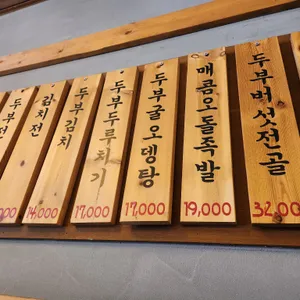 두부전
감치전
14,000
두부김치
17,000
두부두루치기
17,000
두부굴오뎅탕
17,000
매콤오돌족발
19,000
두부버섯전골
32,00